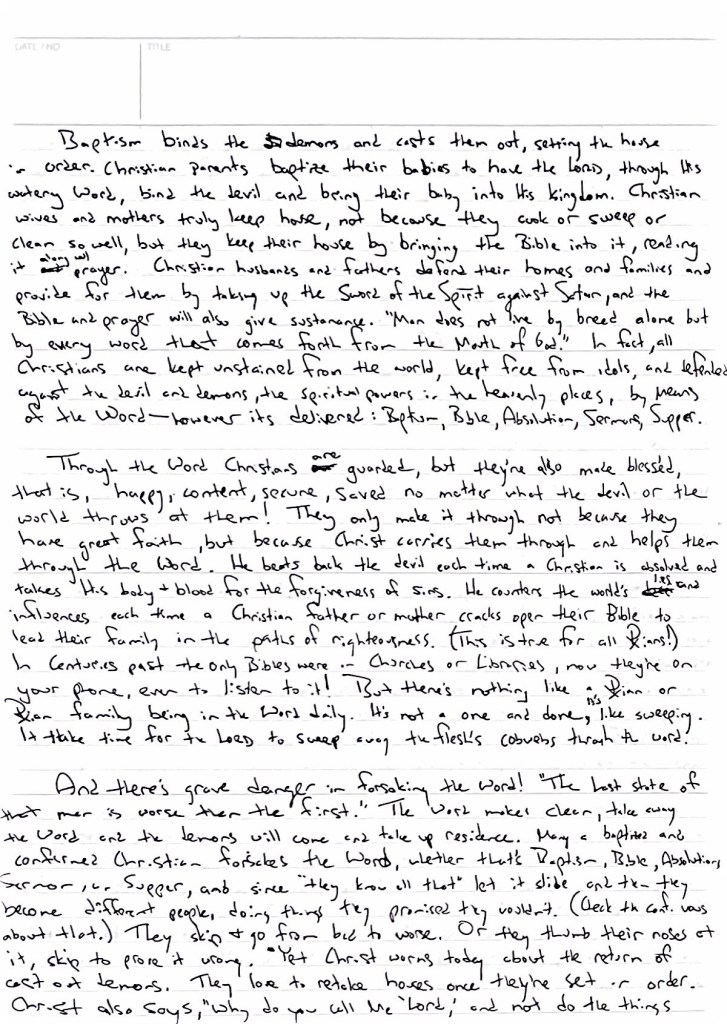 DATE / NO
TITLE
Baptism binds the demons and casts them out, setting the house
in order. Christian parents baptize their babies to have the LORD, through His
watery Word, bind the devil and bring their baby into His kingdom. Christian
wives and mothers truly keep house, not because they cook or sweep or
clean so well, but they keep their house by bringing the Bible into it, reading
it along w/ prayer. Christian husbands and fathers defend their homes and families and
provide for them by taking up the Sword of the Spirit against Satan, and the
Bible and prayer will also give sustanance. "Man does not live by bread alone but
by every word that comes forth from the Mouth of God." In fact, all
Christians are kept unstained from the world, kept free from idols, and defended
against the devil and demons, the spiritual powers in the heavenly places, by means
of the Word—however its delivered: Baptism, Bible, Absolution, Sermons, Supper.
Through the Word Christians are guarded, but they're also made blessed,
that is, happy, content, secure, saved no matter what the devil or the
world throws at them! They only make it through not because they
have great faith, but because Christ carries them through and helps them
through the Word. He beats back the devil each time a Christian is absolved and
takes His body + blood for the forgiveness of sins. He counters the world's lies and
influences each time a Christian father or mother cracks open their Bible to
lead their family in the paths of righteousness. (This is true for all Xians!)
In centuries past the only Bibles were in Churches or Libraries, now they're on
your phone, even to listen to it! But there's nothing like a Xian or
Xian family being in the Word daily. It's not a one and done, it's like sweeping.
It take time for the LORD to sweep away the flesh's cobwebs through the word.
And there's grave danger in forsaking the Word! "The last state of
that man is worse than the first." The Word makes clear, take away
the Word and the demons will come and take up residence. Many a baptized and
confirmed Christian forsakes the Word, whether that's Baptism, Bible, Absolution,
Sermon, or Supper, and since "they know all that" let it slide and then they
become different people, doing things they promised they wouldn't. (Check the conf. vows
about that.) They skip + go from bad to worse. Or they thumb their noses at
it, skip to prove it wrong. Yet Christ warns today about the return of
cast out demons. They love to retake houses once they're set in order.
Christ also says, "Why do you call Me 'Lord,' and not do the things